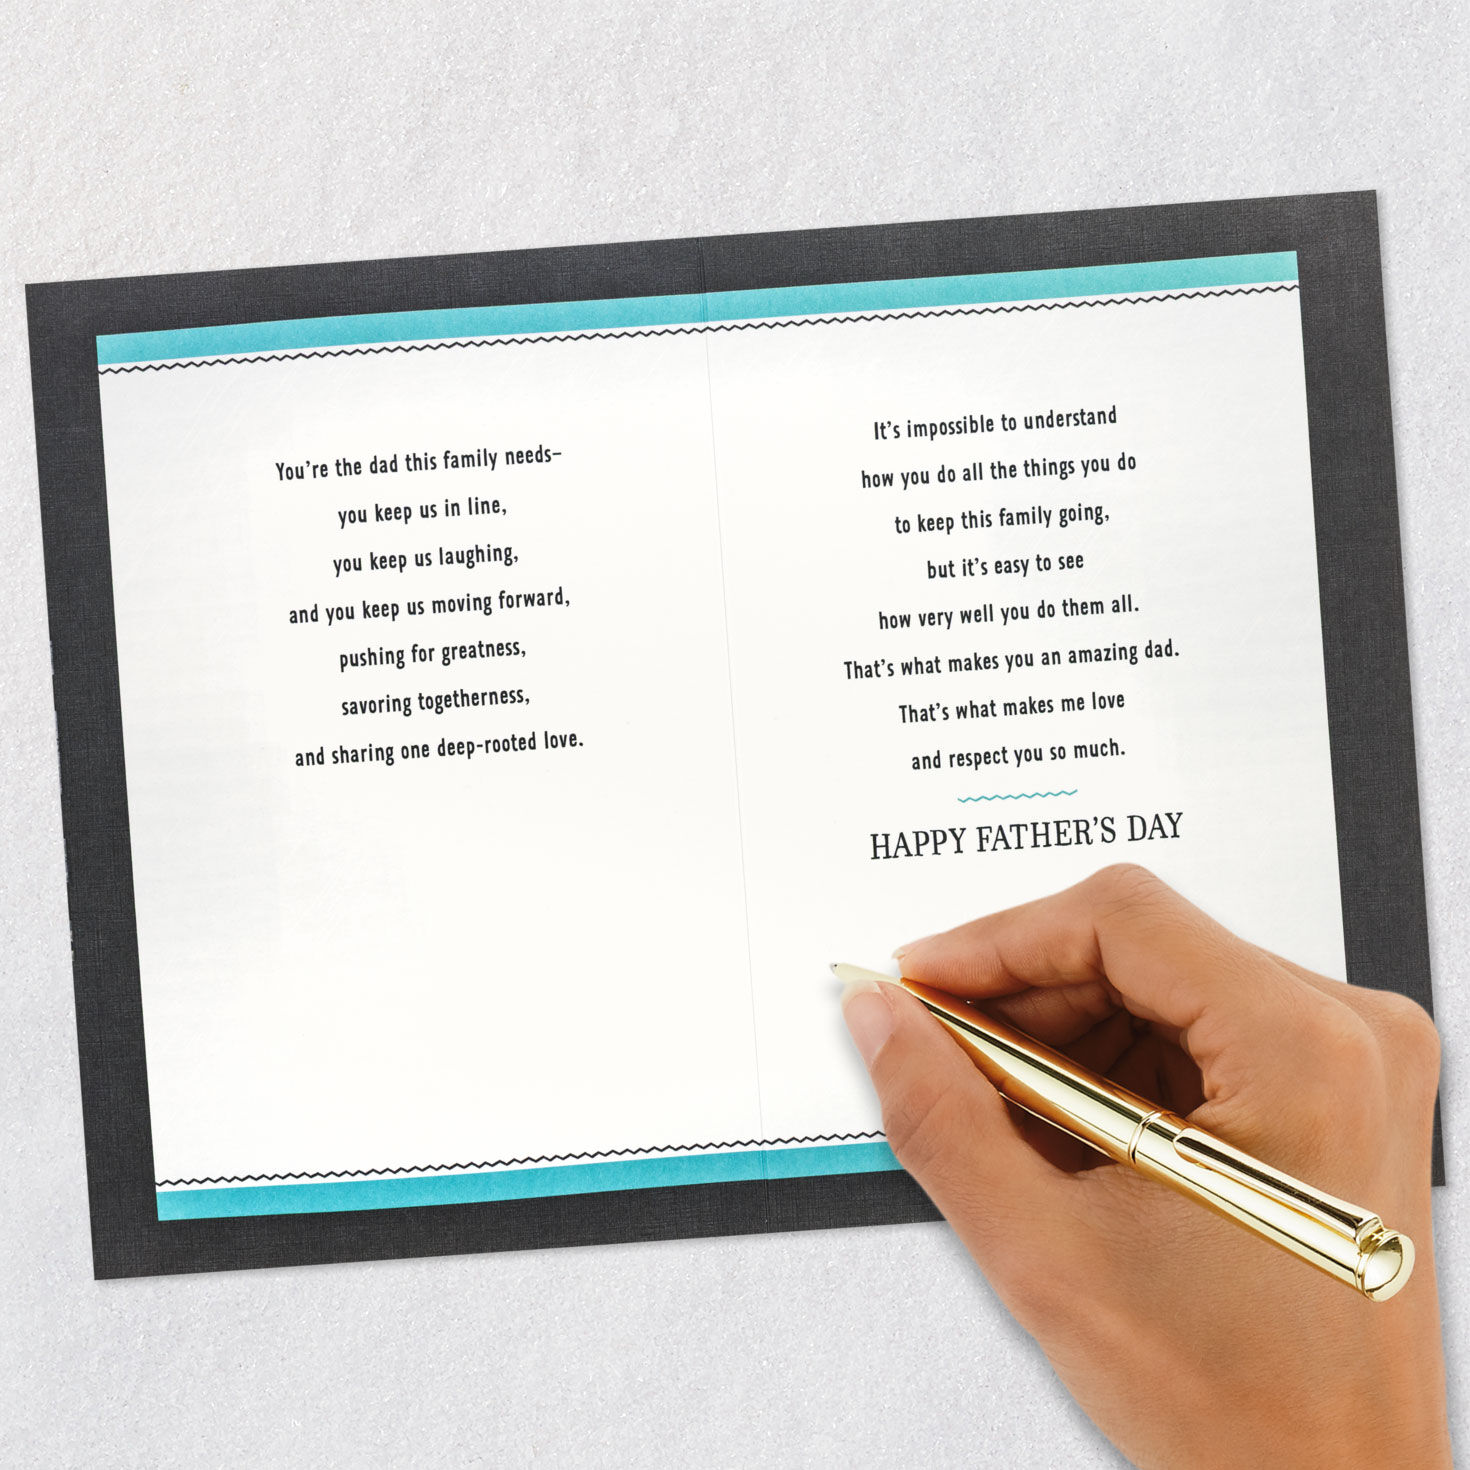 You're the dad this family needs–
you keep us in line,
you keep us laughing,
and you keep us moving forward,
pushing for greatness,
savoring togetherness,
and sharing one deep-rooted love.
It's impossible to understand
how you do all the things you do
to keep this family going,
but it's easy to see
how very well you do them all.
That's what makes you an amazing dad.
That's what makes me love
and respect you so much.
HAPPY FATHER'S DAY